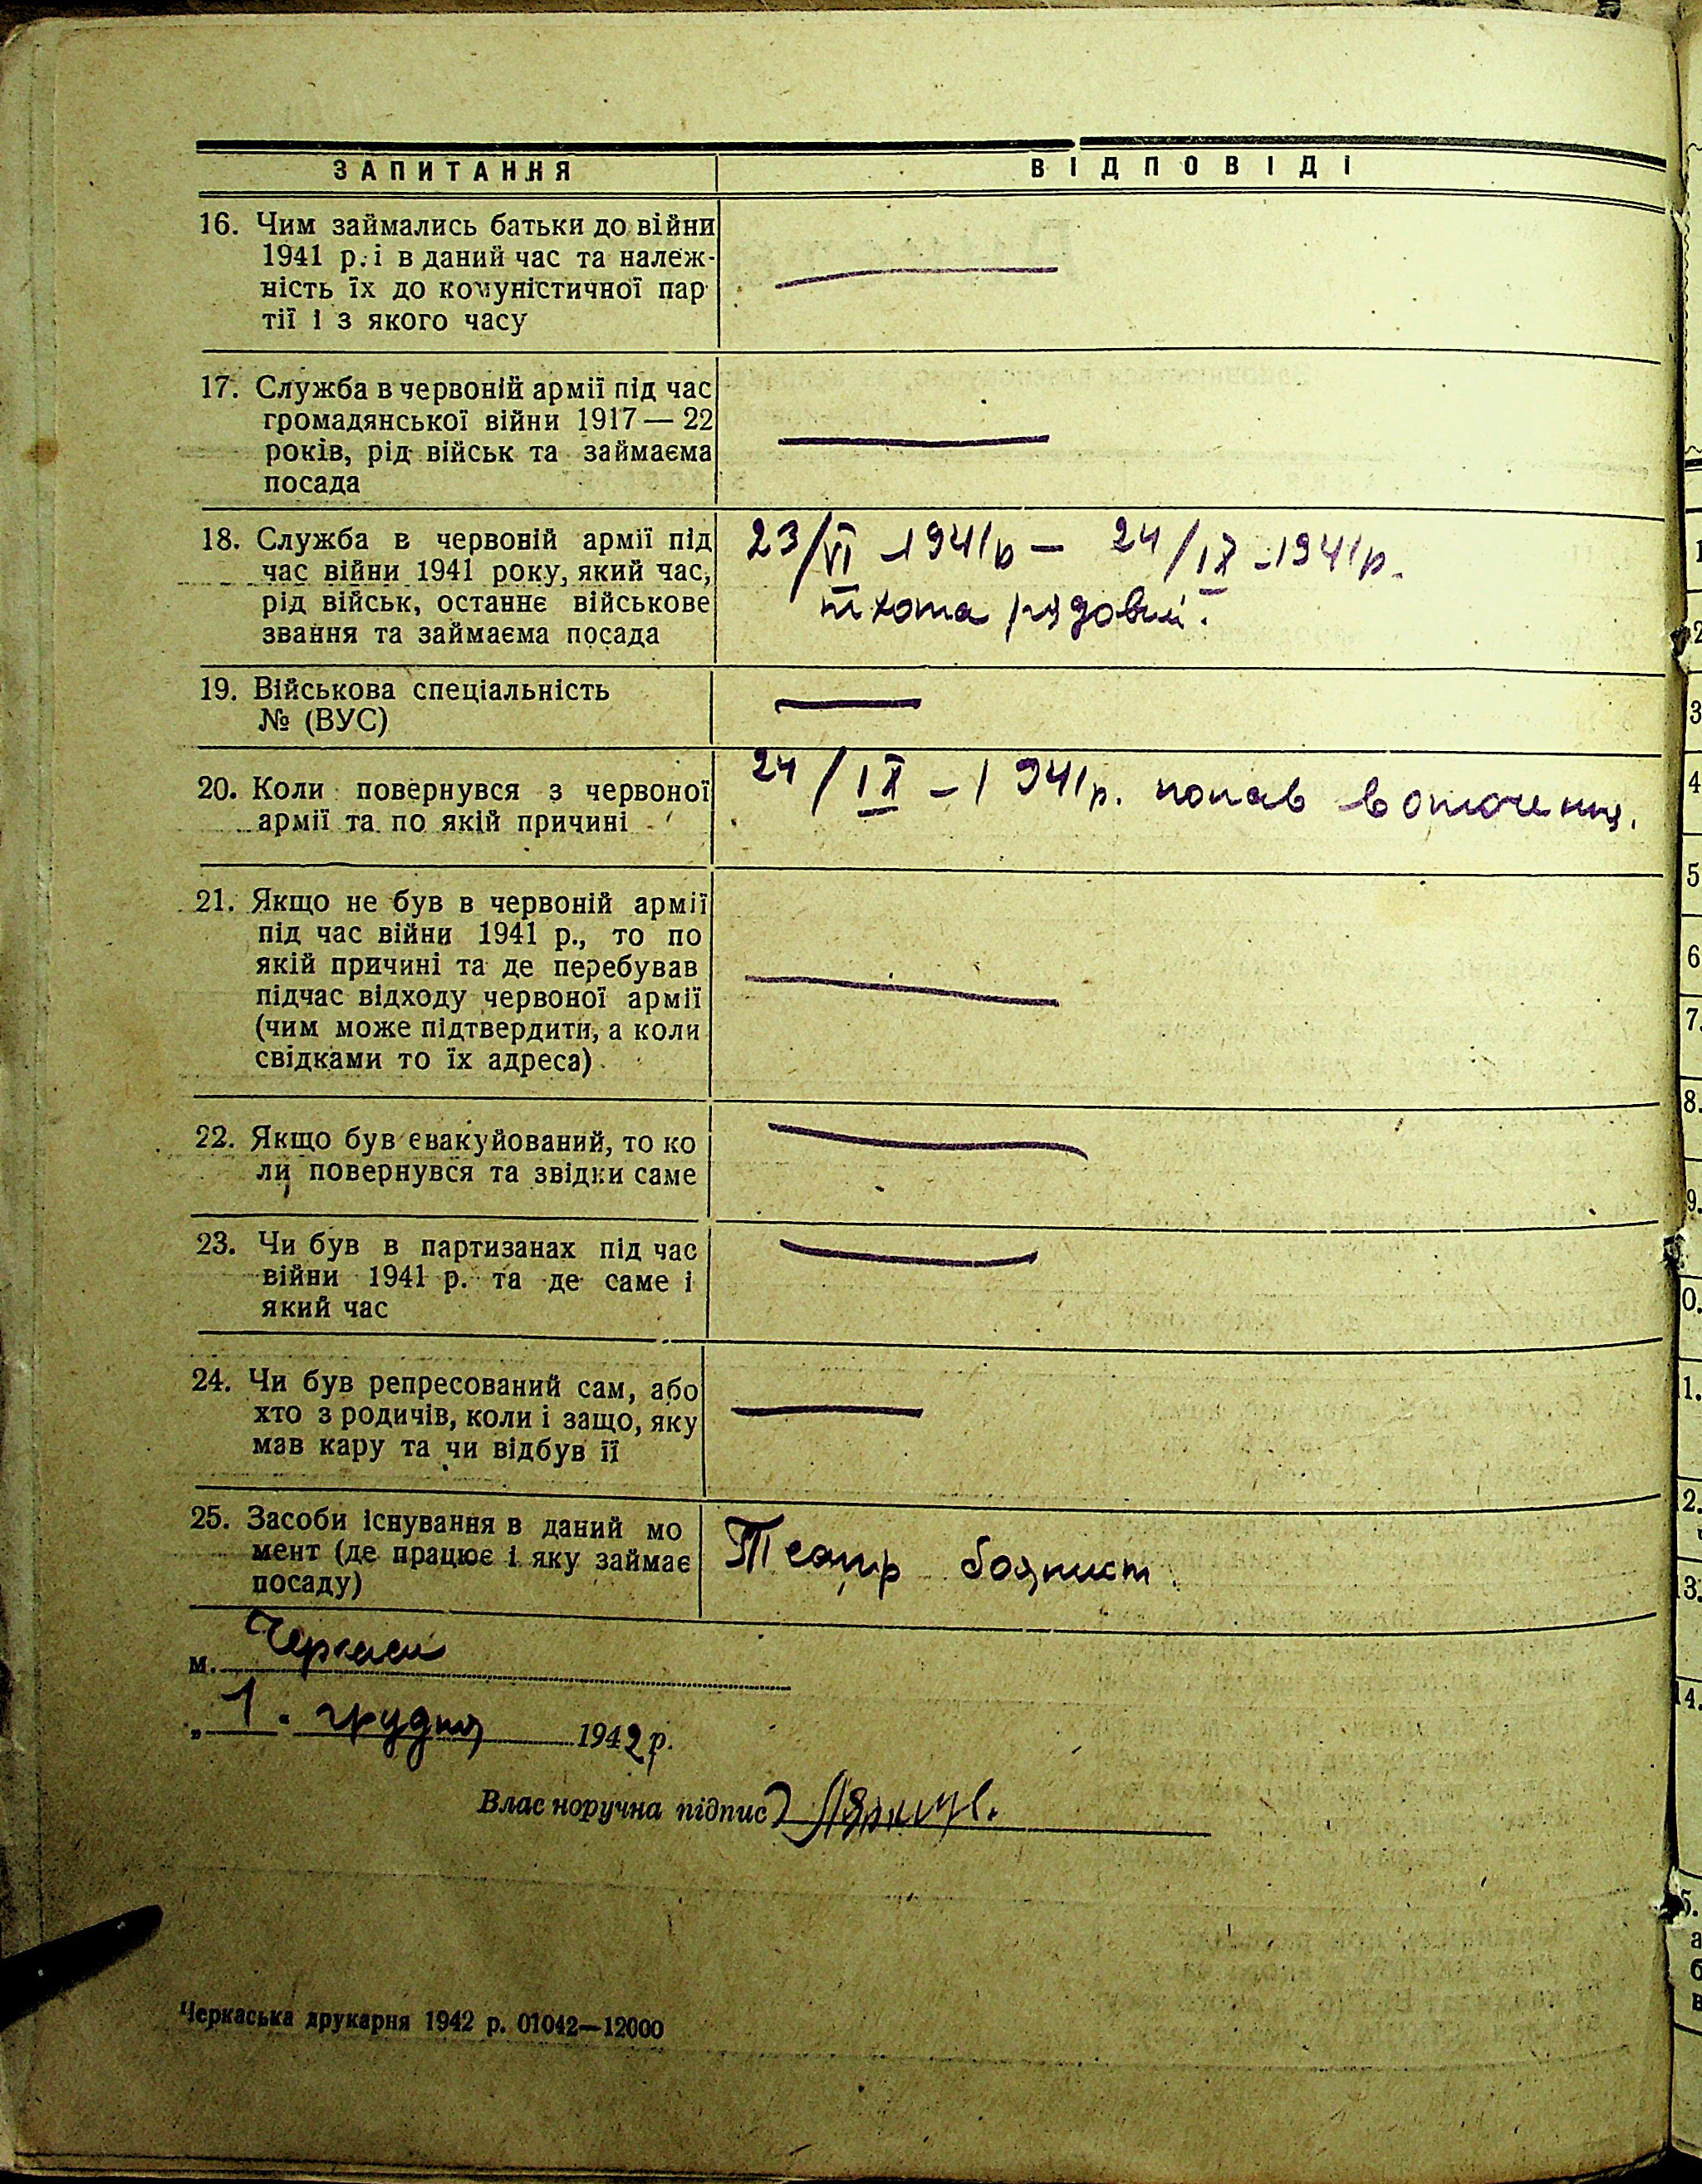 ЗАПИТАННЯ ВІДПОВІДІ
16. Чим займались батьки до війни
1941 р. і в даний час та належ-
ність їх до комуністичної пар
тії і з якого часу
17. Служба в червоній армії під час
громадянської війни 1917 — 22
років, рід військ та займаєма
посада
18. Служба в червоній армії під
час війни 1941 року, який час,
рід військ, останнє військове
звання та займаєма посада
23/VI -1941р — 24/IX -1941р.
піхота рядовий.
19. Військова спеціальність
№ (ВУС)
20. Коли повернувся з червоної
армії та по якій причині
24/IX - 1941р. попав в оточення.
21. Якщо не був в червоній армії
під час війни 1941 р., то по
якій причині та де перебував
підчас відходу червоної армії
(чим може підтвердити, а коли
свідками то їх адреса)
22. Якщо був евакуйований, то ко
ли повернувся та звідки саме
23. Чи був в партизанах під час
війни 1941 р. та де саме і
який час
24. Чи був репресований сам, або
хто з родичів, коли і защо, яку
мав кару та чи відбув її
25. Засоби існування в даний мо
мент (де працює і яку займає
посаду)
Театр баянист.
м. Черкаси
„ 1. грудня 1942 р.
Влас норучна підпис
Черкаська друкарня 1942 р. 01042—12000